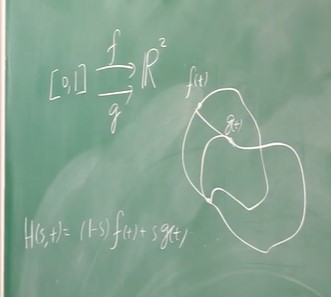 f
[0,1] ⇉ ℝ²
g
f(t)
g(t)
H(s,t)= (1-s) f(t)+ s g(t)